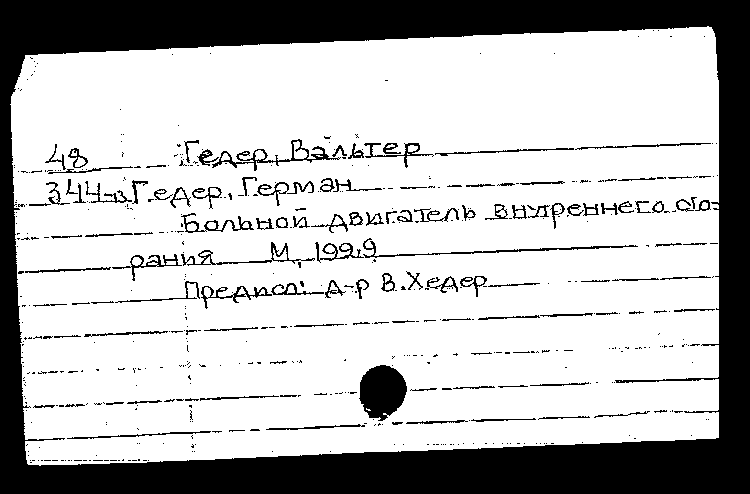 48 Гедер, Вальтер
344-в Гедер, Герман
Больной двигатель внутреннего сго-
рания М, 1999
Предисл: д-р В. Хедер